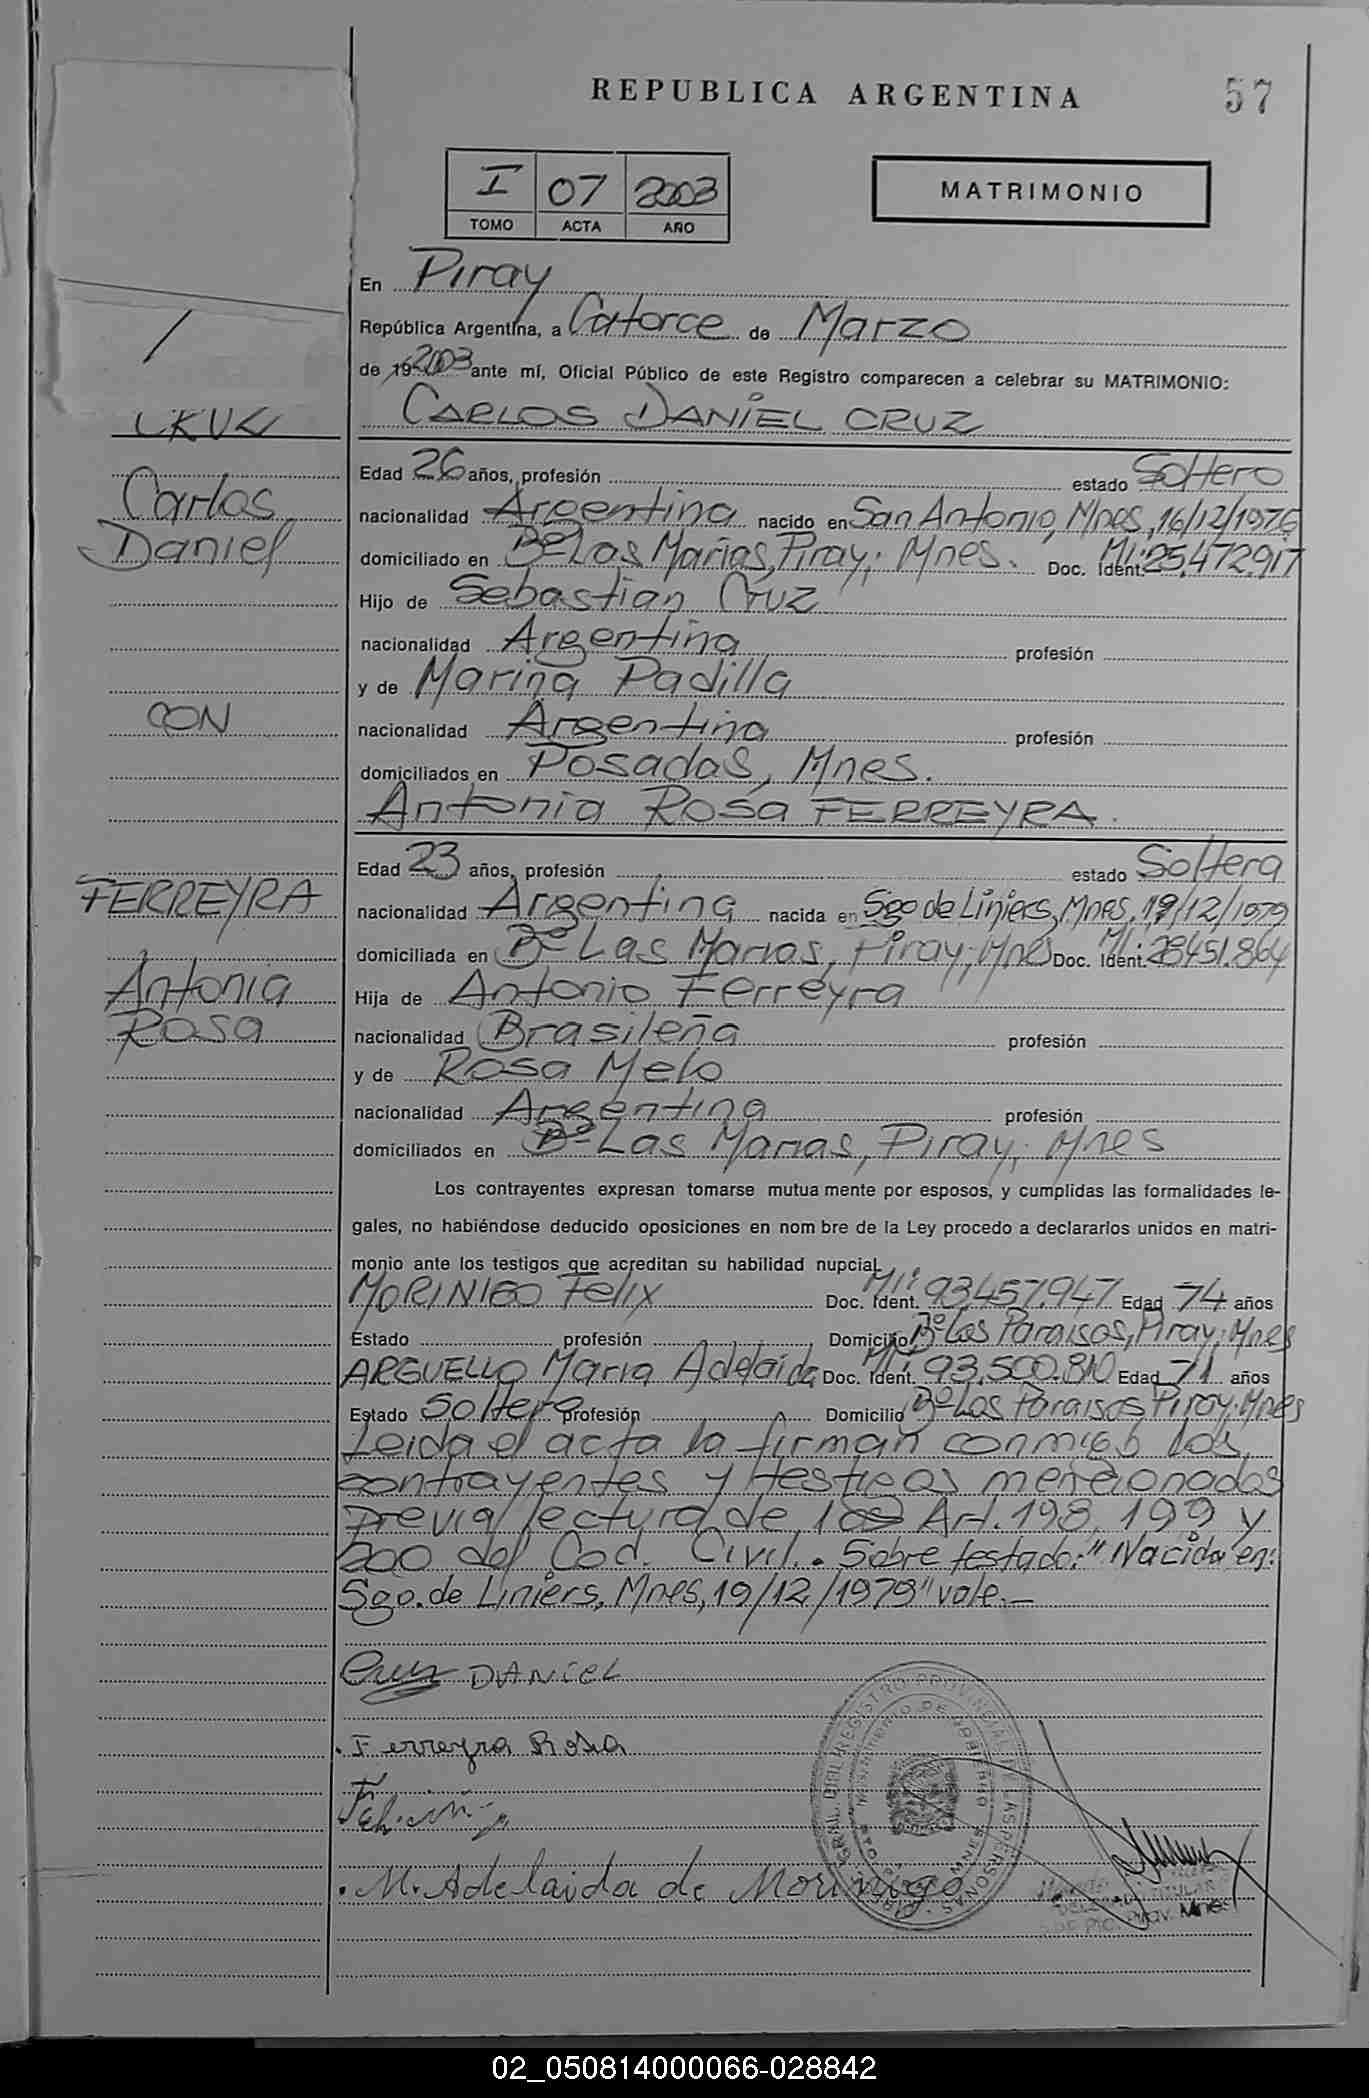 REPUBLICA ARGENTINA
57
I 07 2003
TOMO ACTA AÑO
MATRIMONIO
En Piray
República Argentina, a Catorce de Marzo
de 19 2003 ante mí, Oficial Público de este Registro comparecen a celebrar su MATRIMONIO:
CARLOS DANIEL CRUZ
CRUZ
Carlos
Daniel
CON
FERREYRA
Antonia
Rosa
Edad 26 años, profesión estado Soltero
nacionalidad Argentina nacido en San Antonio, Mnes, 16/12/1976
domiciliado en Bº Las Marias, Piray; Mnes. Doc. Ident. MI: 25.472.917
Hijo de Sebastian Cruz
nacionalidad Argentina profesión
y de Marina Padilla
nacionalidad Argentina profesión
domiciliados en Posadas, Mnes.
Antonia Rosa FERREYRA.
Edad 23 años, profesión estado Soltera
nacionalidad Argentina nacida en Sgo de Liniers, Mnes, 19/12/1979
domiciliada en Bº Las Marias, Piray; Mnes Doc. Ident. MI: 28451.864
Hija de Antonio Ferreyra
nacionalidad Brasileña profesión
y de Rosa Melo
nacionalidad Argentina profesión
domiciliados en Bº Las Marias, Piray; Mnes
Los contrayentes expresan tomarse mutua mente por esposos, y cumplidas las formalidades le-
gales, no habiéndose deducido oposiciones en nom bre de la Ley procedo a declararlos unidos en matri-
monio ante los testigos que acreditan su habilidad nupcial.
MORINIGO Felix Doc. Ident. MI: 93457.947 Edad 74 años
Estado profesión Domicilio Bº Los Paraisos, Piray; Mnes
ARGUELLO Maria Adelaida Doc. Ident. MI: 93.500.810 Edad 71 años
Estado Soltera profesión Domicilio Bº Los Paraisos Piray; Mnes
Leida el acta la firman conmigo los
contrayentes y testigos mencionados
previa lectura de los Art. 198, 199 y
200 del Cod. Civil. Sobre testado: "Nacida en:
Sgo. de Liniers, Mnes, 19/12/1979" vale.—
Cruz DANIEL
Ferreyra Rosa
M. Adelaida de Morinigo
REGISTRO PROVINCIAL DE LAS PERSONAS
MINISTERIO DE GOBIERNO
Piray. Mnes
02_050814000066-028842